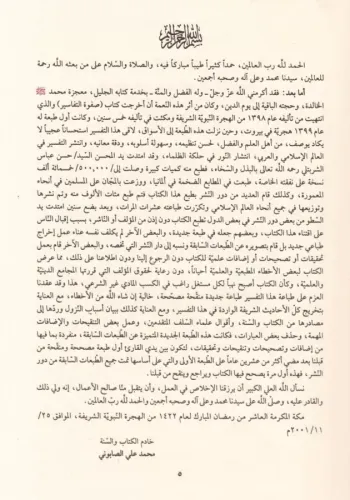 بسم الله الرحمن الرحيم
الحمد لله رب العالمين، حمداً كثيراً طيباً مباركاً فيه، والصلاة والسلام على من بعثه الله رحمة
للعالمين، سيدنا محمد وعلى آله وصحبه أجمعين.
أما بعد: فقد أكرمني الله عز وجل ـ وله الفضل والمنة ـ بخدمة كتابه الجليل، معجزة محمد ﷺ
الخالدة، وحجته الباقية إلى يوم الدين، وكان من أثر هذه النعمة أن أخرجت كتاب (صفوة التفاسير) والذي
انتهيت من تأليفه عام ١٣٩٨ من الهجرة النبوية الشريفة ومكثت في تأليفه خمس سنين، وكانت أول طبعة له
عام ١٣٩٩ هجرية في بيروت، وحين نزلت هذه الطبعة إلى الأسواق، لاقى هذا التفسير استحساناً عجيباً لا
يكاد يوصف، من أهل العلم والفضل، لحسن تنظيمه، وسهولة أسلوبه، ودقة معانيه، وانتشر التفسير في
العالم الإسلامي والعربي، انتشار النور في حلكة الظلماء، وقد امتدت يد المحسن السيد/ حسن عباس
الشربتلي رحمه الله تعالى بالبذل والسخاء، فطبع منه كميات كبيرة وصلت إلى/ ٥٠٠,٠٠٠/ خمسمائة ألف
نسخة على نفقته الخاصة، طبعت في المطابع الضخمة في ألمانيا، ووزعت بالمجان على المسلمين في أنحاء
المعمورة، وكذلك قام العديد من دور النشر بطبع هذا الكتاب القيم فتم طبع مئات الألوف منه وتم نشرها
وتوزيعها في جميع أنحاء العالم الإسلامي وتكررت طباعته عشرات المرات، وبعد بضع سنين امتدت يد
بعض دور النشر في بعض الدول تطبع الكتاب دون إذن من المؤلف أو الناشر، بسبب إقبال الناس
على اقتناء هذا الكتاب، وبعضهم جعله في طبعة جديدة، والبعض الآخر لم يكلف نفسه عناء عمل إخراج
طباعي جديد بل قام بتصويره عن الطبعات السابقة ونسبه إلى دار النشر التي تخصه، والبعض الآخر قام بعمل
تحقيقات أو تصحيحات أو إضافات للكتاب دون الرجوع إلينا ودون اطلاعنا على ذلك، مما عرض
الكتاب لبعض الأخطاء المطبعية والعلمية أحياناً، دون رعاية لحقوق المؤلف التي قررتها المجامع الدينية
والعلمية، وكأن الكتاب أصبح نهباً لكل مستغل راغب في الكسب المادي غير الشرعي، هذا وقد عقدنا
العزم على طباعة هذا التفسير طباعة جديدة منقحة مصححة، خالية إن شاء الله من الأخطاء، مع العناية
بتخريج كل الأحاديث الشريفة الواردة في هذا التفسير، ومع العناية كذلك ببيان أسباب النزول وردها إلى
مصادرها من الكتاب والسنة، وأقوال علماء السلف المتقدمين، وعمل بعض التنقيحات والإضافات
المهمة، وحذف بعض العبارات، فكانت هذه الطبعة الجديدة المتميزة عن الطبعات السابقة، منفردة بما فيها
من إضافات وتصحيحات وتنقيحات وتحقيقات، لتكون بين يدي القارئ أول طبعة مصححة ومنقحة من
قبلنا بعد مضي أكثر من عشرين عاماً على الطبعة الأولى والتي على أساسها تمت جميع الطبعات السابقة من دور
النشر، فهذه أول مرة يصحح فيها الكتاب ويراجع وينقح من قبلنا.
نسأل الله العلي الكبير أن يرزقنا الإخلاص في العمل، وأن يتقبل منا صالح الأعمال، إنه ولي ذلك
والقادر عليه، وصلى الله على سيدنا محمد وعلى آله وصحبه أجمعين والحمد لله رب العالمين.
مكة المكرمة العاشر من رمضان المبارك لعام ١٤٢٢ من الهجرة النبوية الشريفة، الموافق ٢٥/
١١/ ٢٠٠١م
خادم الكتاب والسنة
محمد علي الصابوني
٥